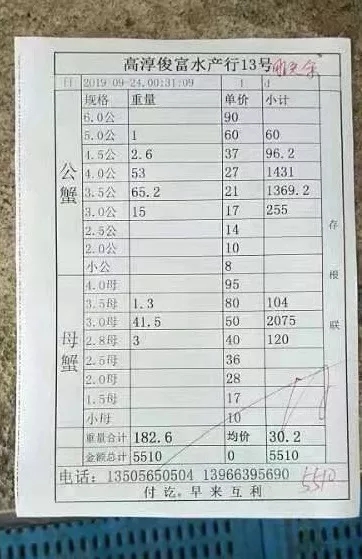 高淳俊富水产行13号
日 2019-09-24,00:31:09 1 d
规格 重量 单价 小计
公蟹
6.0公 90
5.0公 1 60 60
4.5公 2.6 37 96.2
4.0公 53 27 1431
3.5公 65.2 21 1369.2
3.0公 15 17 255
2.5公 14
2.0公 10
小公 8
母蟹
4.0母 95
3.5母 1.3 80 104
3.0母 41.5 50 2075
2.8母 3 40 120
2.5母 36
2.0母 28
1.5母 17
小母 10
重量合计 182.6 均价 30.2
金额总计 5510 0 5510
电话: 13505650504 13966395690
5510
付讫。早来互利
存根联